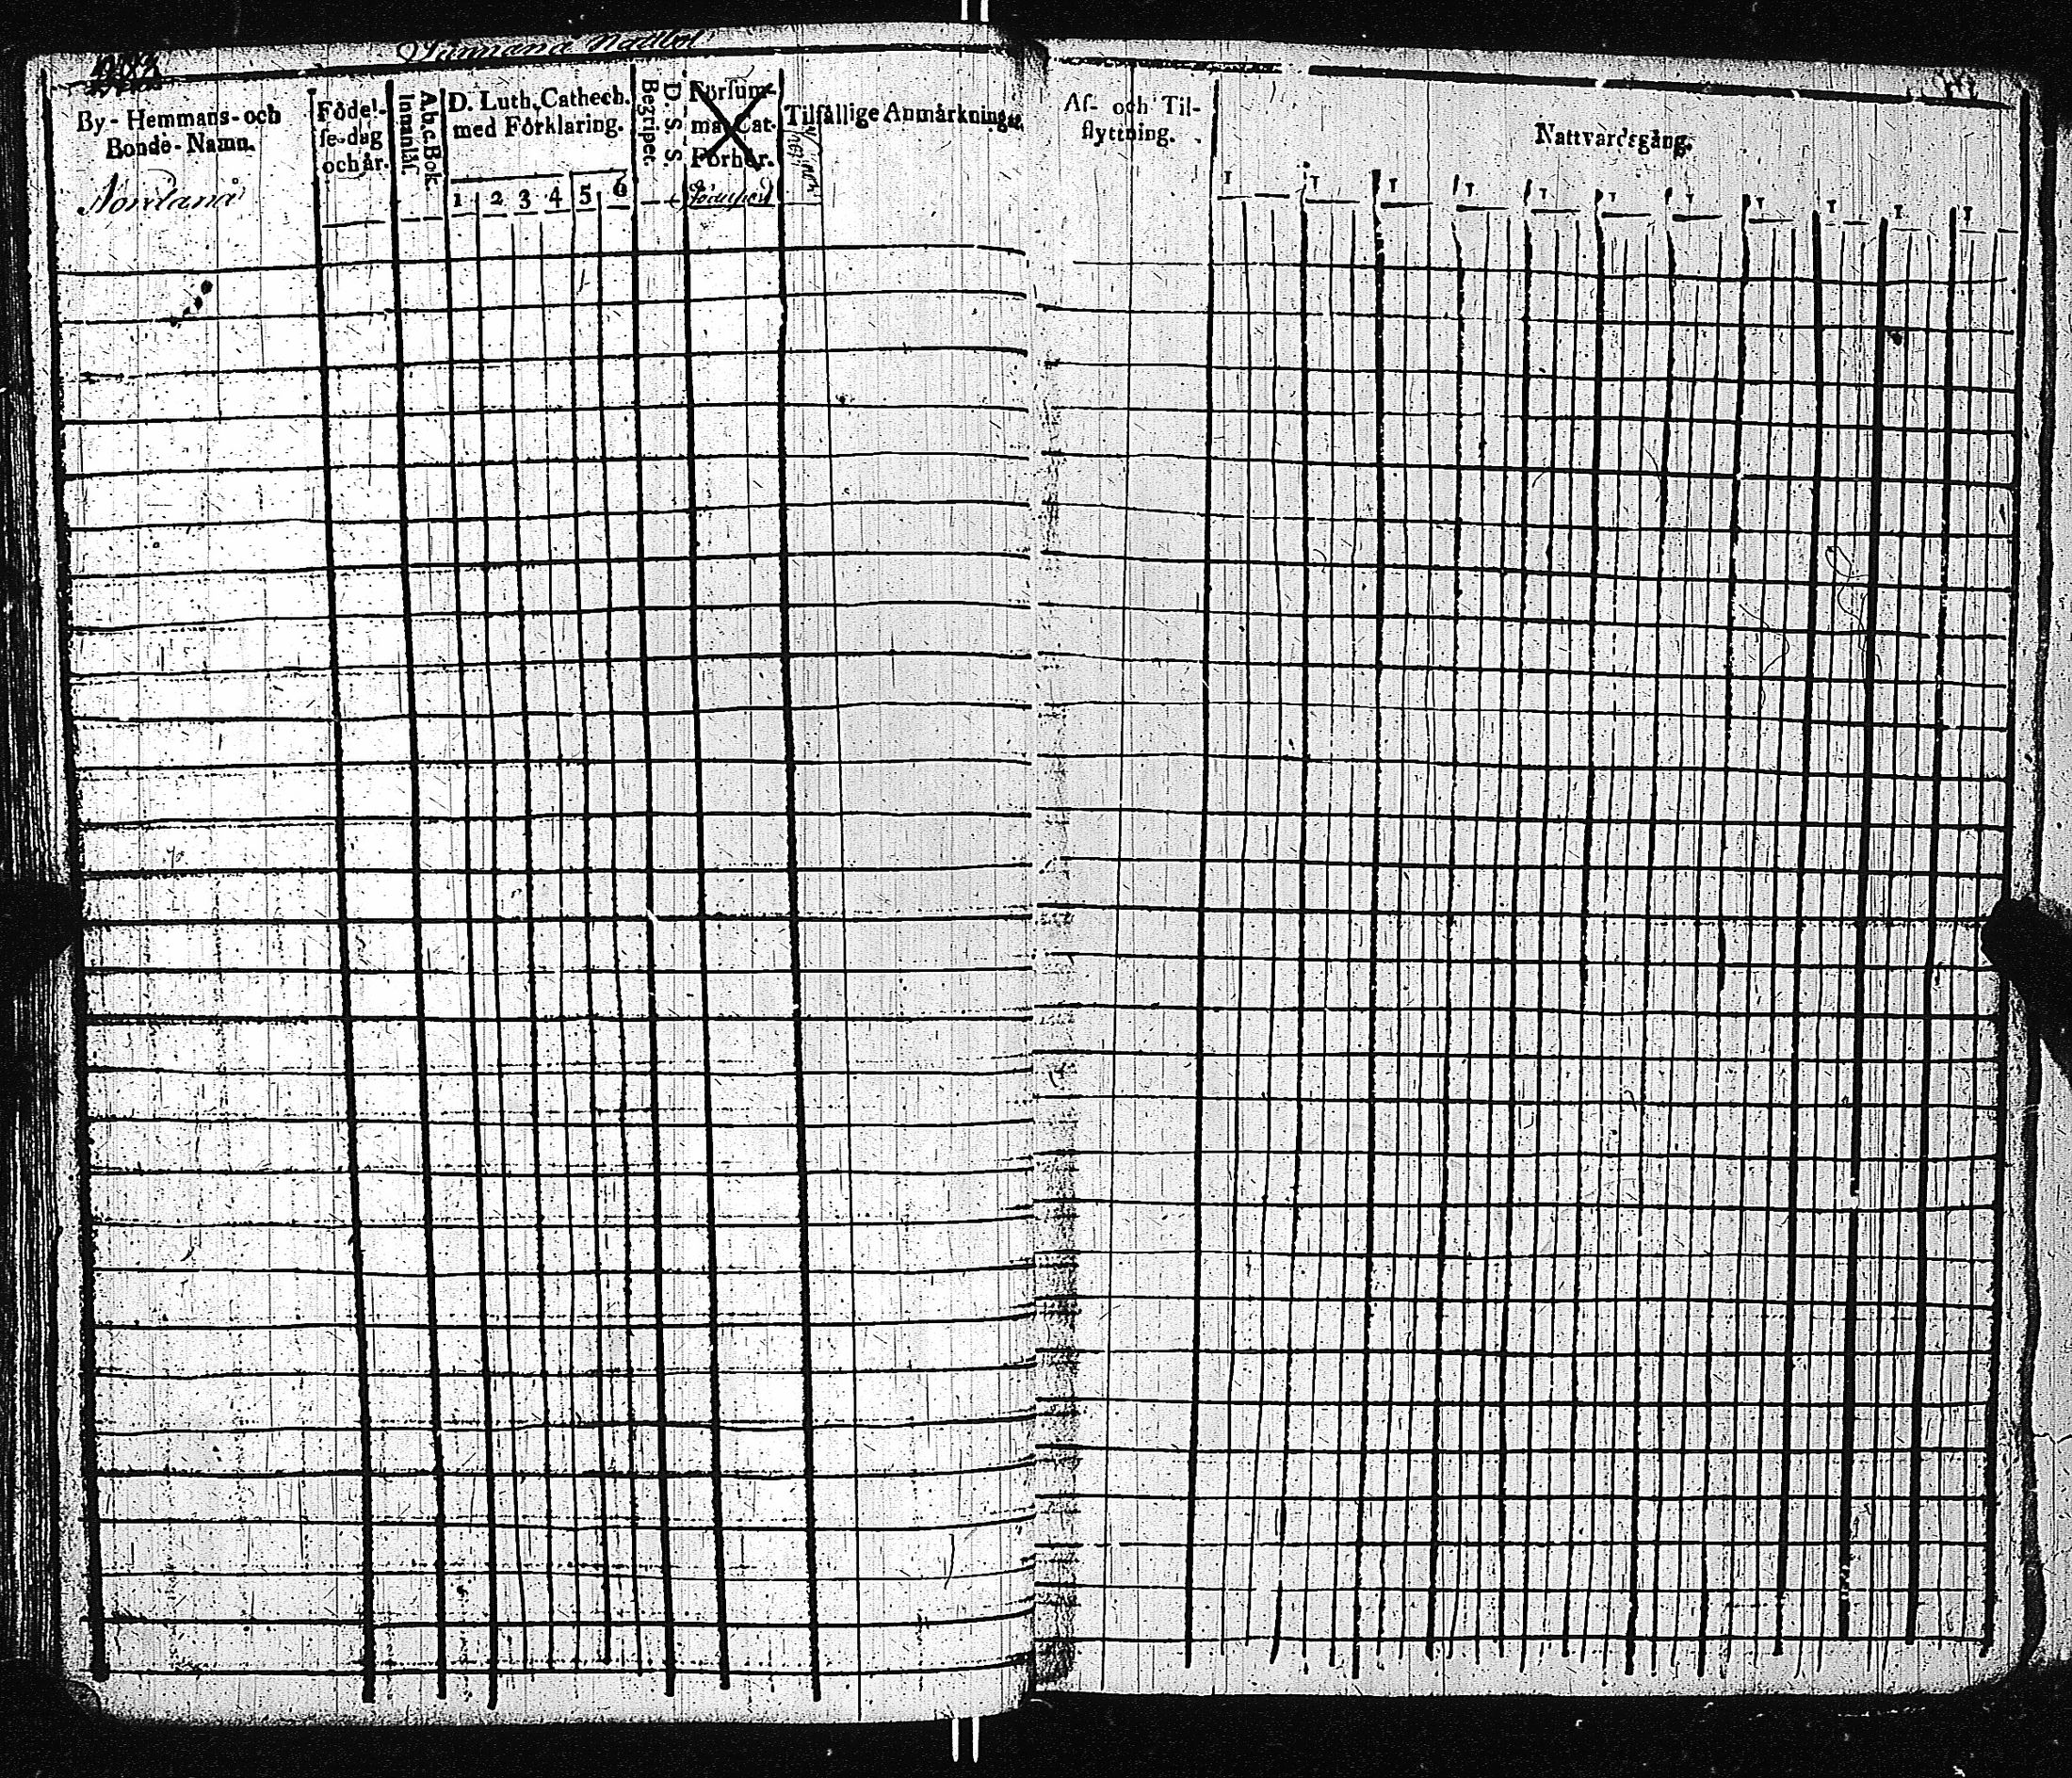 By- Hemmans- och
Bonde-Namn.
Födel-
se-dag
och år.
Ab,c,Bok.
Innanläs.
D. Luth. Cathech.
med Förklaring.
1 2 3 4 5 6
Begripet.
D. S. S.
Försum-
ma Cat-
Förhör.
Tilfällige Anmärkningar
Af- och Til-
flyttning.
Nattvardsgång.
T T T T T T T T T T T